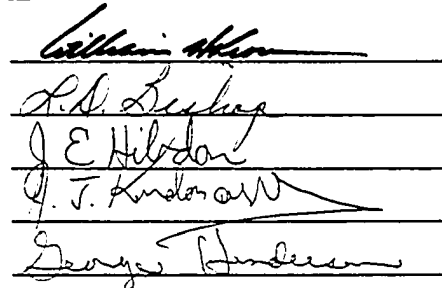 William
L.D. Bishop
J E Hibdon
J. T.
George Henderson